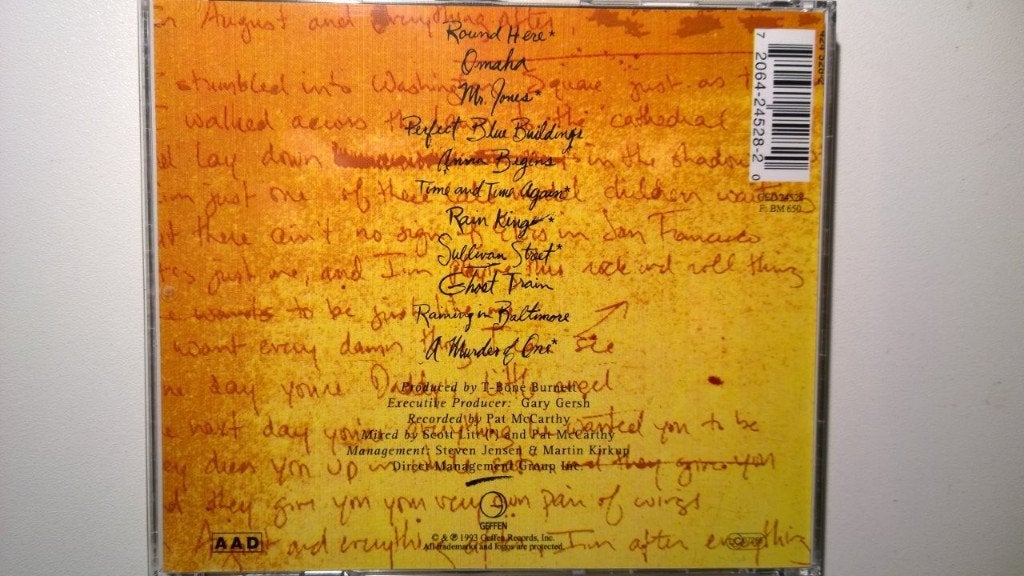 In August and everything after
Round Here*
Omaha
I stumbled into Washington Square just as
Mr. Jones*
I walked across the the cathedral
Perfect Blue Buildings
lay down in the shadow
Anna Begins
I'm just one of these children waiting
Time and Time Again*
Rain King*
there ain't no sign of in San Francisco
Sullivan Street*
just me, and I'm this rock and roll thing
Ghost Train
wants to be just
Raining in Baltimore
want every damn thing I see
A Murder of One*
day you're Daddy's little angel
Produced by T-Bone Burnett
Executive Producer: Gary Gersh
Recorded by Pat McCarthy
next day you're everything wanted you to be
Mixed by Scott Litt (*) and Pat McCarthy
Management: Steven Jensen & Martin Kirkup
Direct Management Group Inc.
dress you up in and they give you
they give you your very own pair of wings
GEFFEN
AAD
August and everything I'm after everything
© & ℗ 1993 Geffen Records, Inc.
All trademarks and logos are protected.
7 20642-4528-2 0
F: BM 650